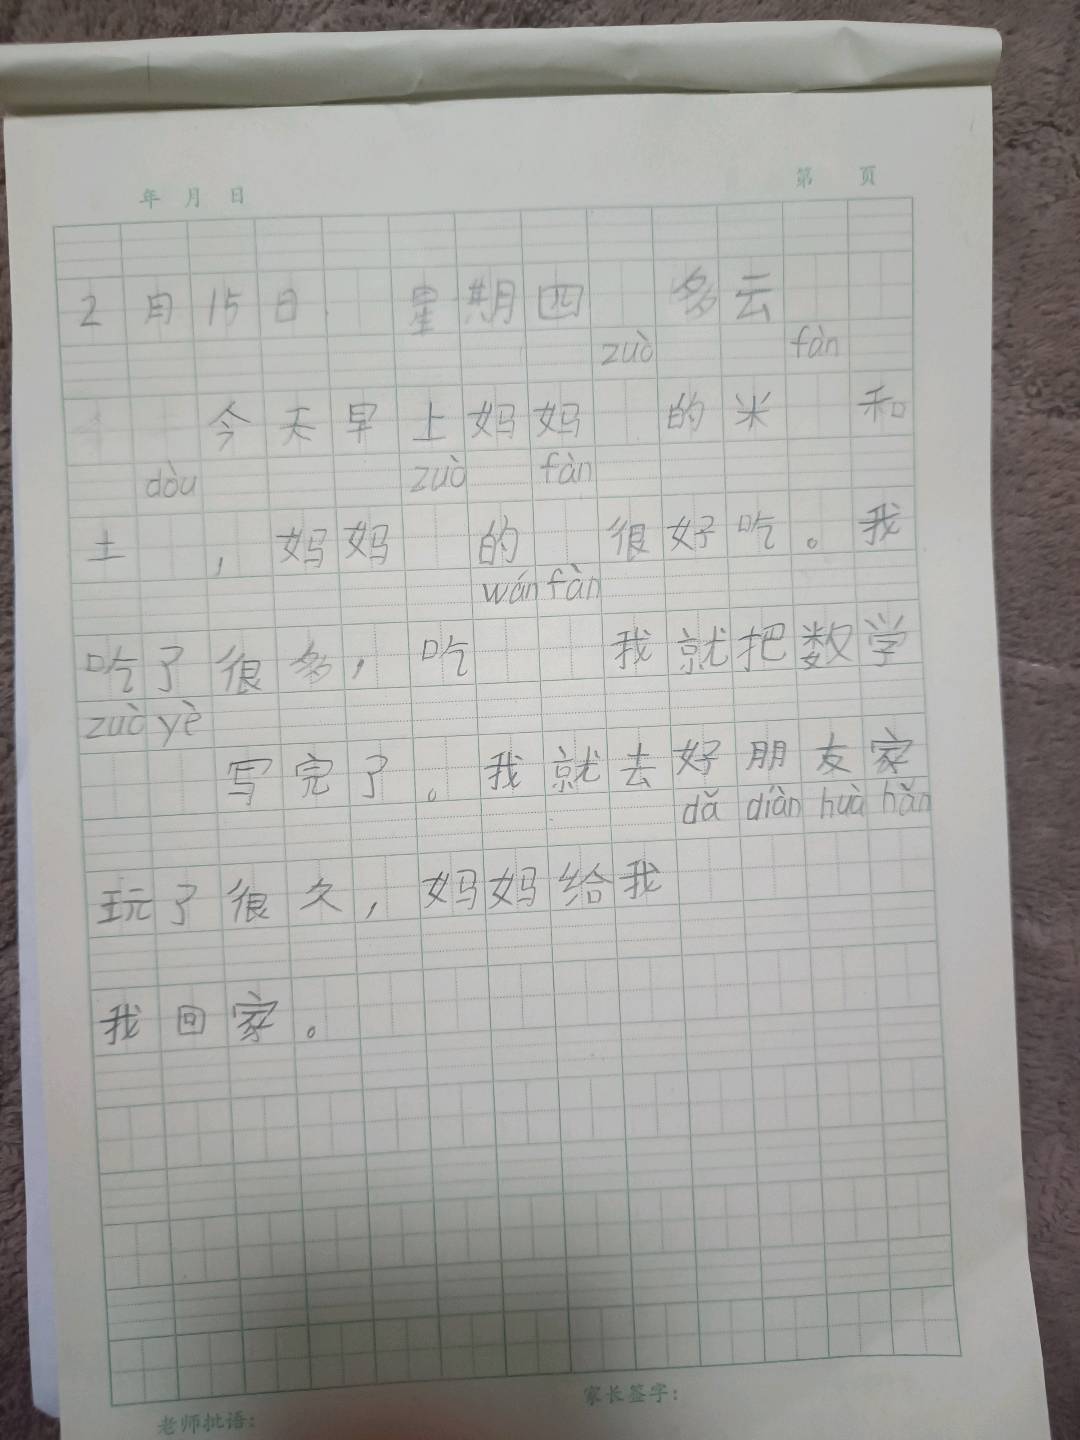 年 月 日
第 页
2月15日 星期四 多云
zuò fàn
今天早上妈妈 的米 和
dòu zuò fàn
土 ，妈妈 的 很好吃。我
wán fàn
吃了很多，吃 我就把数学
zuò yè
写完了。我就去好朋友家
dǎ diàn huà hǎn
玩了很久，妈妈给我
我回家。
老师批语：
家长签字：